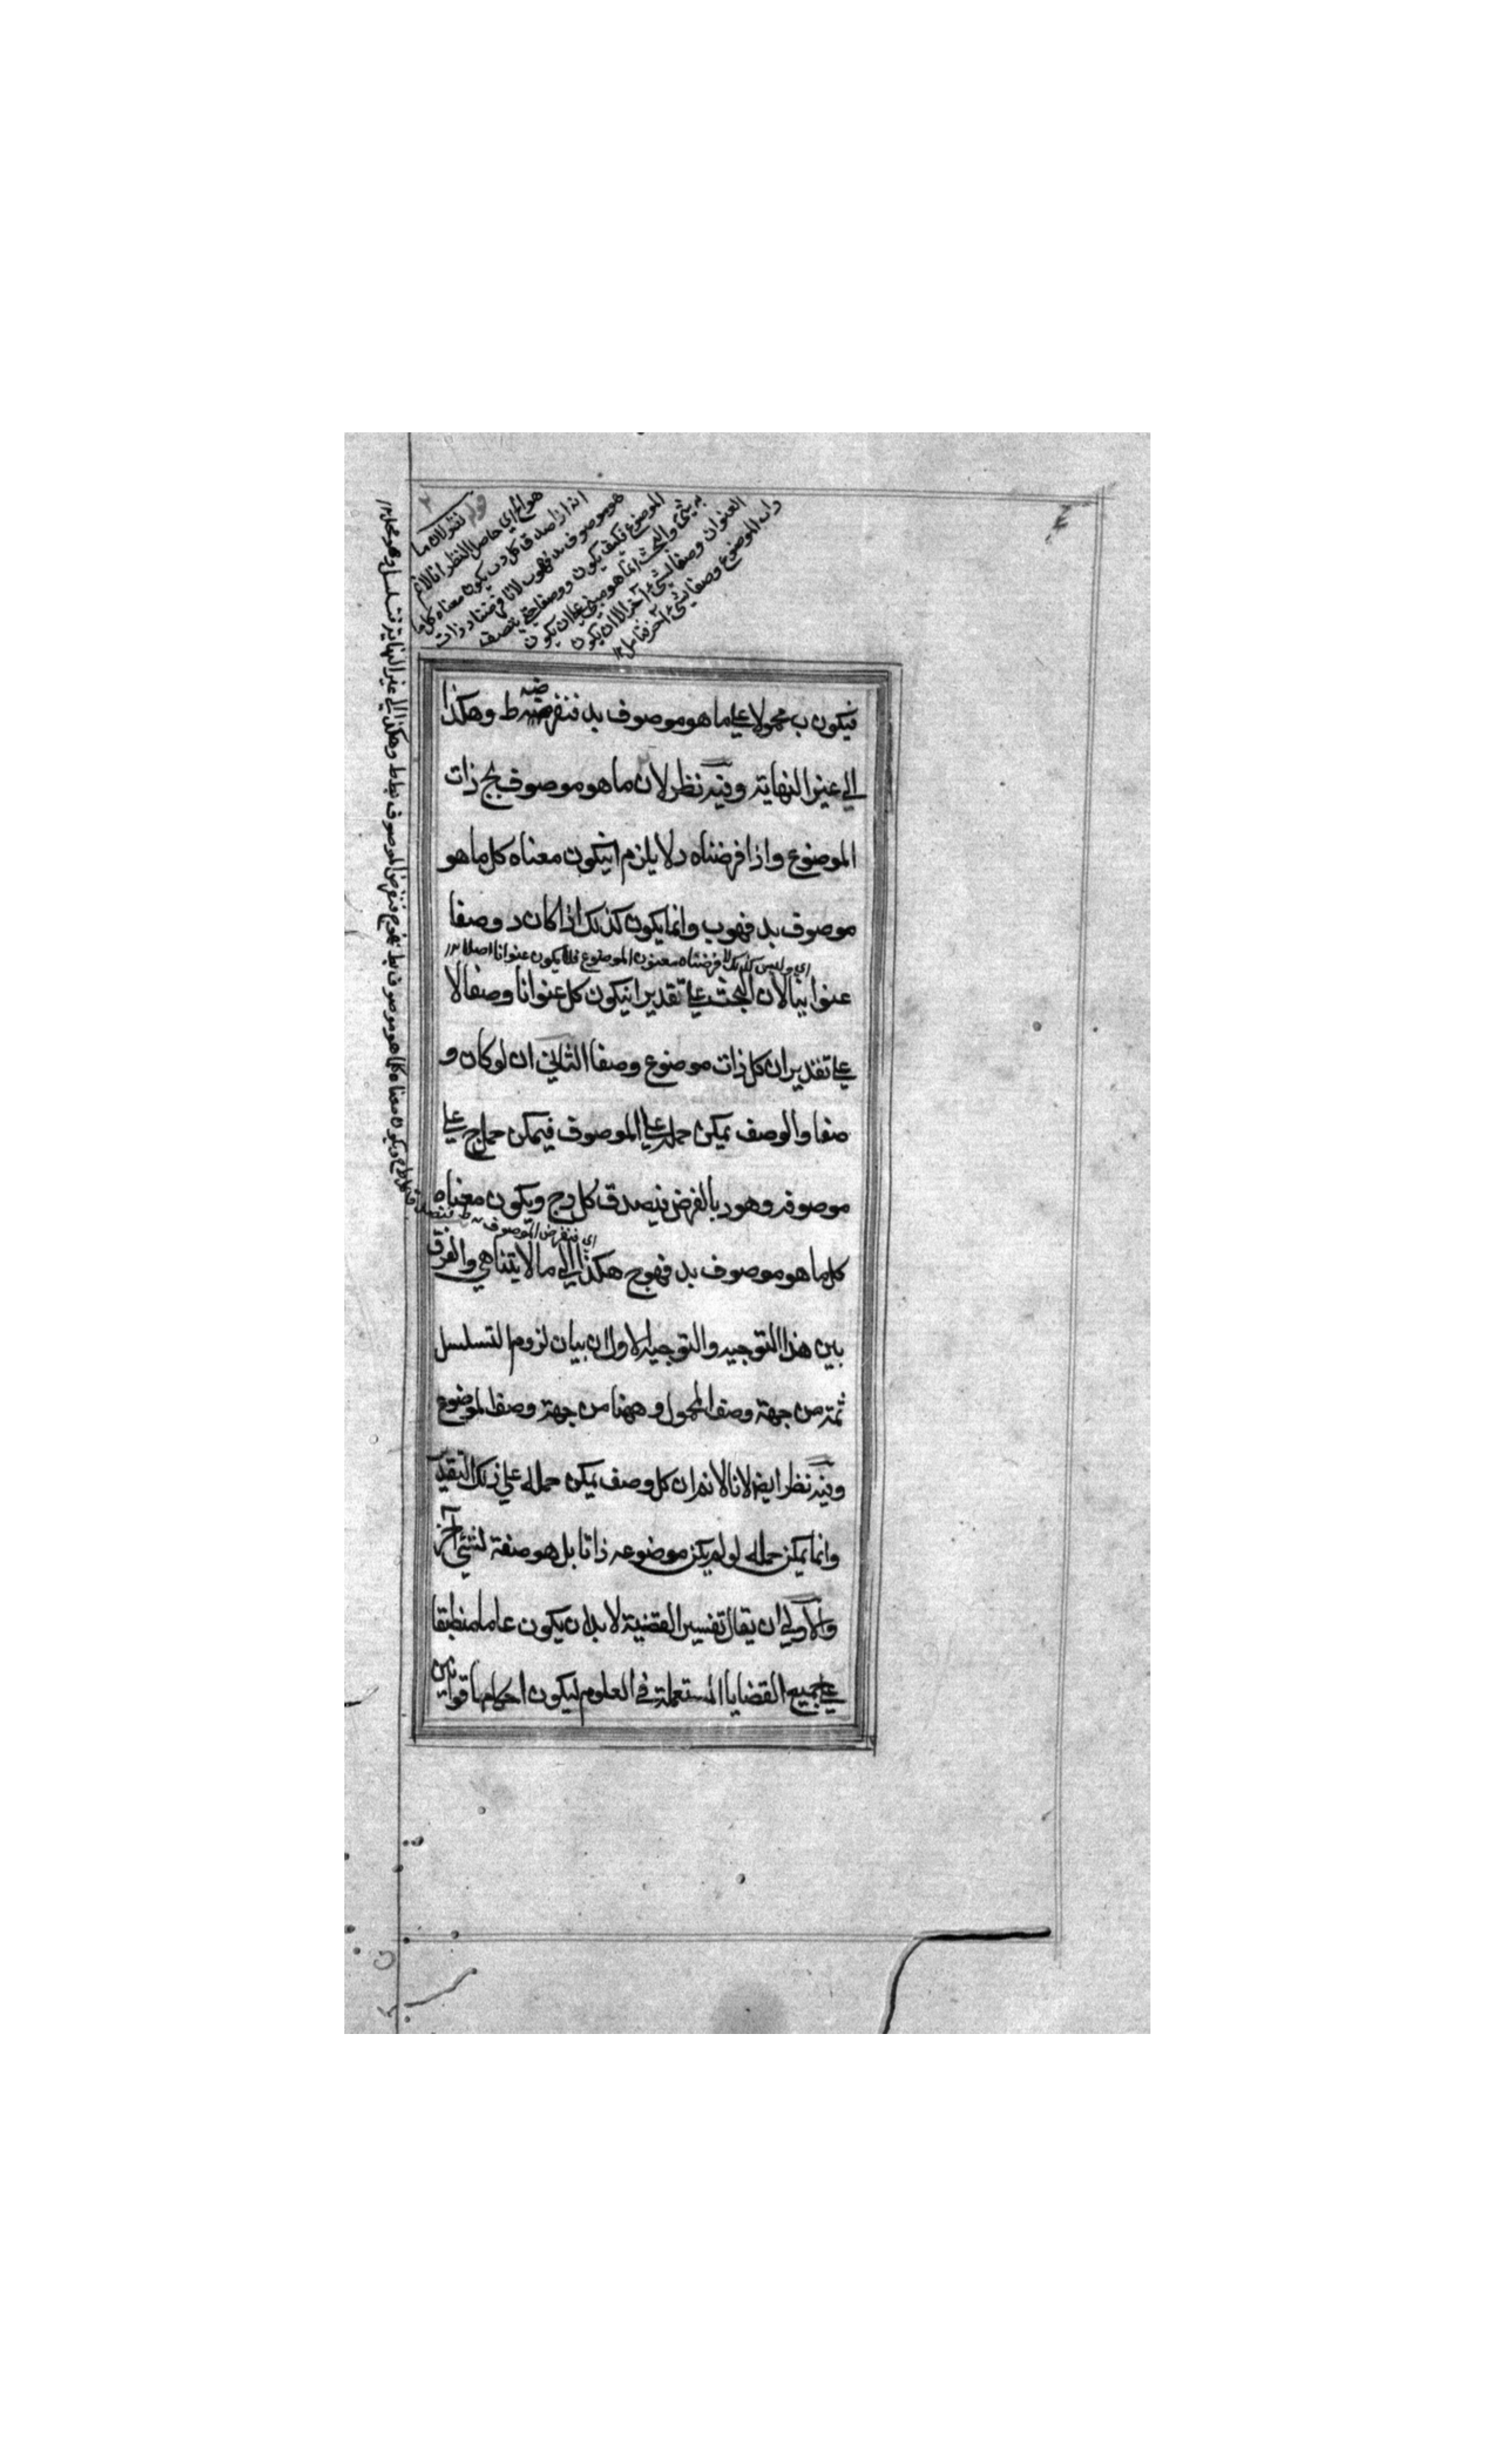 قوله
نظر لان ما
هو الخ اي حاصل النظر انا لانم
انه اذا صدق كل د ب يكون معناه كل ما
هو موصوف بد فهو ب لانا فرضنا د ذات
الموضوع فكيف يكون وصفا حتي يتصف
به شئ والبحث انما هو مبني علي ان يكون
العنوان وصفا لشئ آخر لا ان يكون
ذات الموضوع وصفا لشئ آخر فتامل
فيكون ب محمولا علي ما هو موصوف بد فنفرضه ط وهكذا
الي غير النهاية وفيه نظر لان ما هو موصوف بج ذات
الموضوع واذا فرضناه د لا يلزم انيكون معناه كل ما هو
موصوف بد فهو ب وانما يكون كذلك اذا كان د وصفا
اي وليس كذلك لا فرضناه معنون الموضوع فلا يكون عنوانا اصلا
عنوانيا لان البحث علي تقدير انيكون كل عنوانا وصفا لا
علي تقدير ان كل ذات موضوع وصفا الثاني ان لو كان و
صفا والوصف يمكن حمله علي الموصوف فيمكن حمل ج علي
موصوفه وهو د بالفرض فيصدق كل د ج ويكون معناه
اي فنفرض الموصوف بد ط فتصدق كل ط ج ويكون معناه كلما هو موصوف بط فهو ج فنفرض الموصوف بط ط وهكذا الي غير النهاية فتسلسل وهو محال
كل ما هو موصوف بد فهو ج هكذا الي ما لا يتناهي والفرق
بين هذا التوجيه والتوجيه الاول ان بيان لزوم التسلسل
ثمة من جهة وصف المحمول وههنا من جهة وصف الموضوع
وفيه نظر ايضا لانا لانم ان كل وصف يمكن حمله علي ذلك التقدير
وانما يمكن حمله لو لم يكن موضوعه ذاتا بل هو صفة لشئ آخر
والاولي ان يقال تفسير القضية لا بد ان يكون عاما منطبقا
علي جميع القضايا المستعملة في العلوم ليكون احكامها قوانين